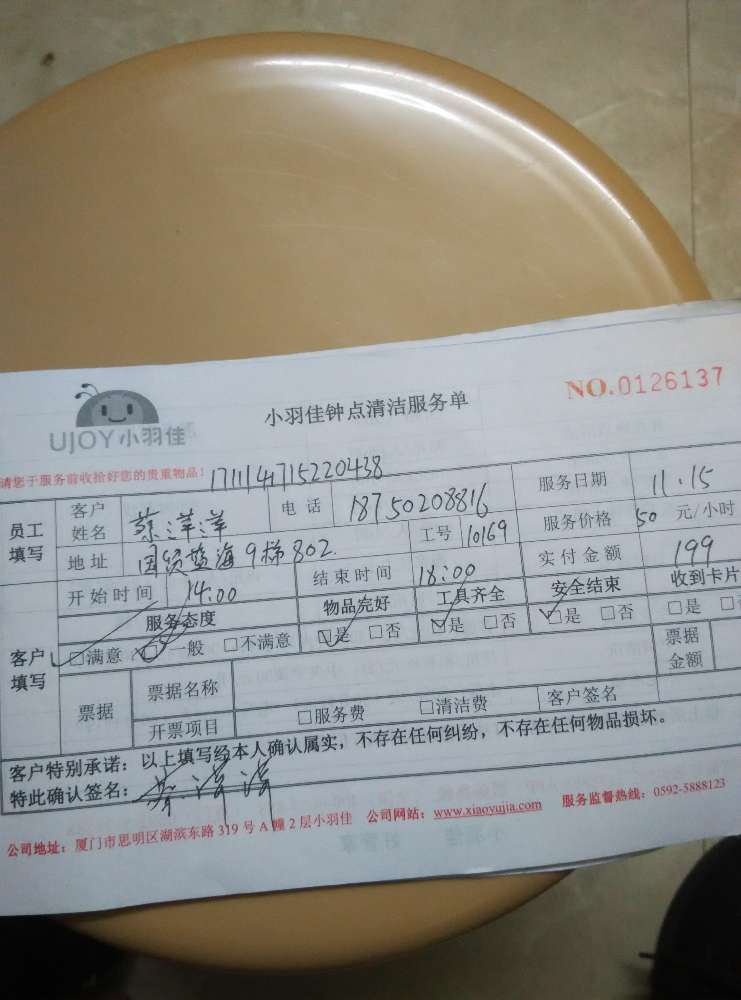 NO.0126137
小羽佳钟点清洁服务单
UJOY小羽佳
请您于服务前收拾好您的贵重物品! 171114715220438
员工填写 客户姓名 蔡洋洋 电话 18750208816 服务日期 11.15
地址 国贸蓝海9梯802 工号 10169 服务价格 50 元/小时
开始时间 14:00 结束时间 18:00 实付金额 199
客户填写 服务态度 物品完好 工具齐全 安全结束 收到卡片
□满意 □一般 □不满意 □是 □否 □是 □否 □是 □否 □是
票据 票据名称 票据金额
开票项目 □服务费 □清洁费 客户签名
客户特别承诺：以上填写经本人确认属实，不存在任何纠纷，不存在任何物品损坏。
特此确认签名：
公司地址：厦门市思明区湖滨东路 319 号 A 幢 2 层小羽佳 公司网站：www.xiaoyujia.com 服务监督热线：0592-5888123